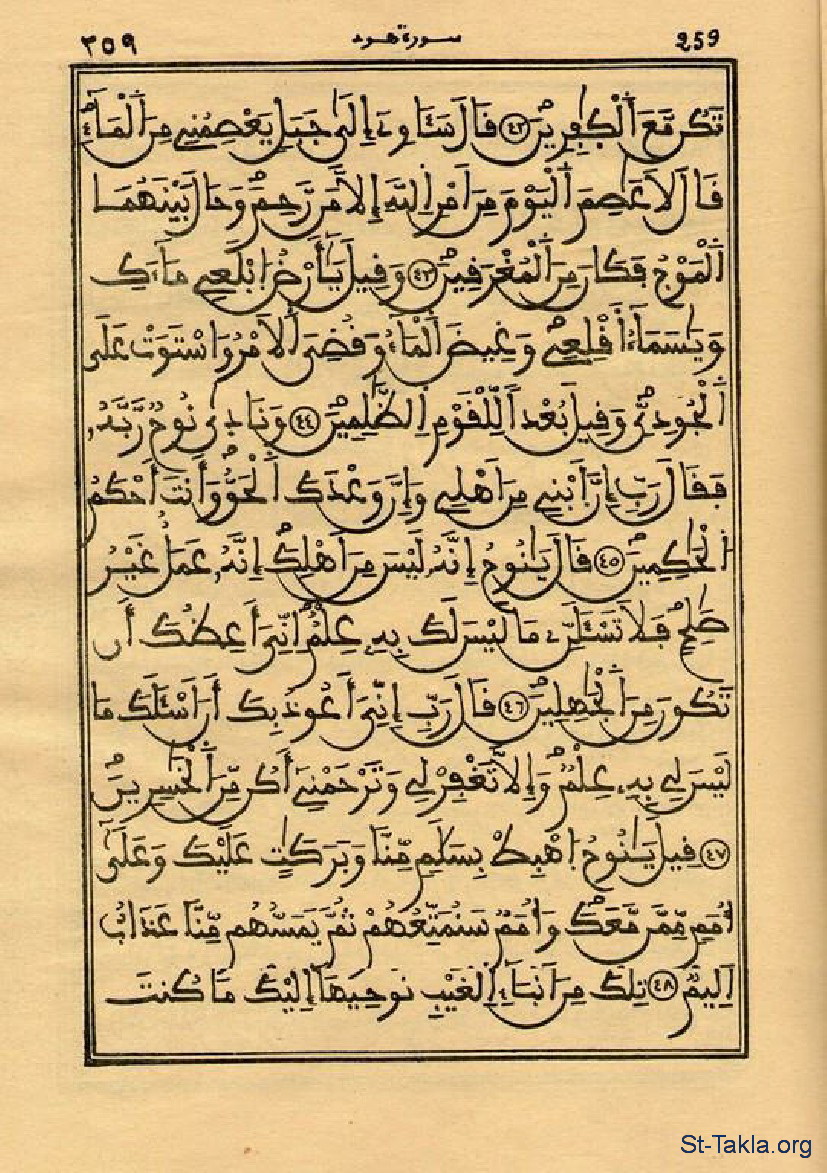 259 سورة هود ٣٥٩
تَكُن مَّعَ ٱلْكَٰفِرِينَ ٤٢ قَالَ سَـَٔاوِے إِلَىٰ جَبَلٖ يَعْصِمُنِے مِنَ ٱلْمَآءِ
قَالَ لَا عَاصِمَ ٱلْيَوْمَ مِنَ اَمْرِ اِ۬للَّهِ إِلَّا مَن رَّحِمَ وَحَالَ بَيْنَهُمَا
ٱلْمَوْجُ فَكَانَ مِنَ ٱلْمُغْرَقِينَ ٤٣ وَقِيلَ يَٰٓأَرْضُ اُ۪بْلَعِے مَآءَكِ
وَيَٰسَمَآءُ أَقْلِعِے وَغِيضَ ٱلْمَآءُ وَقُضِيَ ٱلَامْرُ وَاسْتَوَتْ عَلَى
ٱلْجُودِيِّ وَقِيلَ بُعْداٗ لِّلْقَوْمِ اِ۬لظَّٰلِمِينَ ٤٤ وَنَادَىٰ نُوحٞ رَّبَّهُۥ
فَقَالَ رَبِّ إِنَّ اَ۪بْنِے مِنَ اَهْلِے وَإِنَّ وَعْدَكَ ٱلْحَقُّ وَأَنتَ أَحْكَمُ
ٱلْحَٰكِمِينَ ٤٥ قَالَ يَٰنُوحُ إِنَّهُۥ لَيْسَ مِنَ اَهْلِكَ إِنَّهُۥ عَمَلٌ غَيْرُ
صَٰلِحٖ فَلَا تَسْـَٔلَنِّۦ مَا لَيْسَ لَكَ بِهِۦ عِلْمٌ اِنِّيَ أَعِظُكَ أَن
تَكُونَ مِنَ ٱلْجَٰهِلِينَ ٤٦ قَالَ رَبِّ إِنِّيَ أَعُوذُ بِكَ أَنَ اَسْـَٔلَكَ مَا
لَيْسَ لِے بِهِۦ عِلْمٞ وَإِلَّا تَغْفِرْ لِے وَتَرْحَمْنِےٓ أَكُن مِّنَ ٱلْخَٰسِرِينَ
٤٧ قِيلَ يَٰنُوحُ اُ۪هْبِطْ بِسَلَٰمٖ مِّنَّا وَبَرَكَٰتٍ عَلَيْكَ وَعَلَىٰٓ
أُمَمٖ مِّمَّن مَّعَكَ وَأُمَمٞ سَنُمَتِّعُهُمْ ثُمَّ يَمَسُّهُم مِّنَّا عَذَابٌ
اَلِيمٞ ٤٨ تِلْكَ مِنَ اَنۢبَآءِ اِ۬لْغَيْبِ نُوحِيهَآ إِلَيْكَ مَا كُنتَ
St-Takla.org